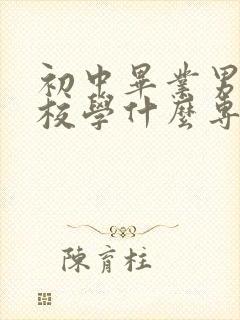 初中畢業男
校學什麼專
陳育柱